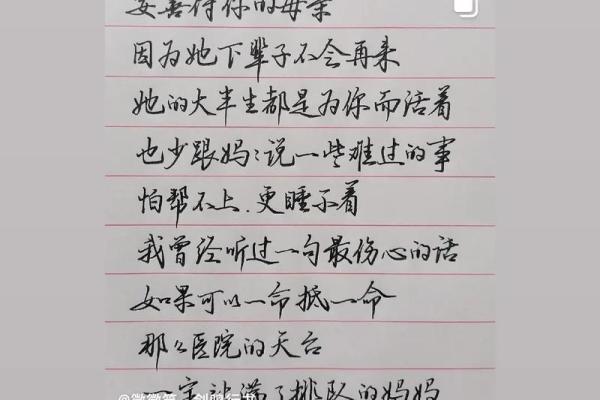 要善待你的母亲
因为她下辈子不会再来
她的大半生都是为你而活着
也少跟妈:说一些难过的事
怕帮不上.更睡不着
我曾经听过一句最伤心的话
如果可以一命抵一命
那么医院的天台
一定站满了排队的妈妈